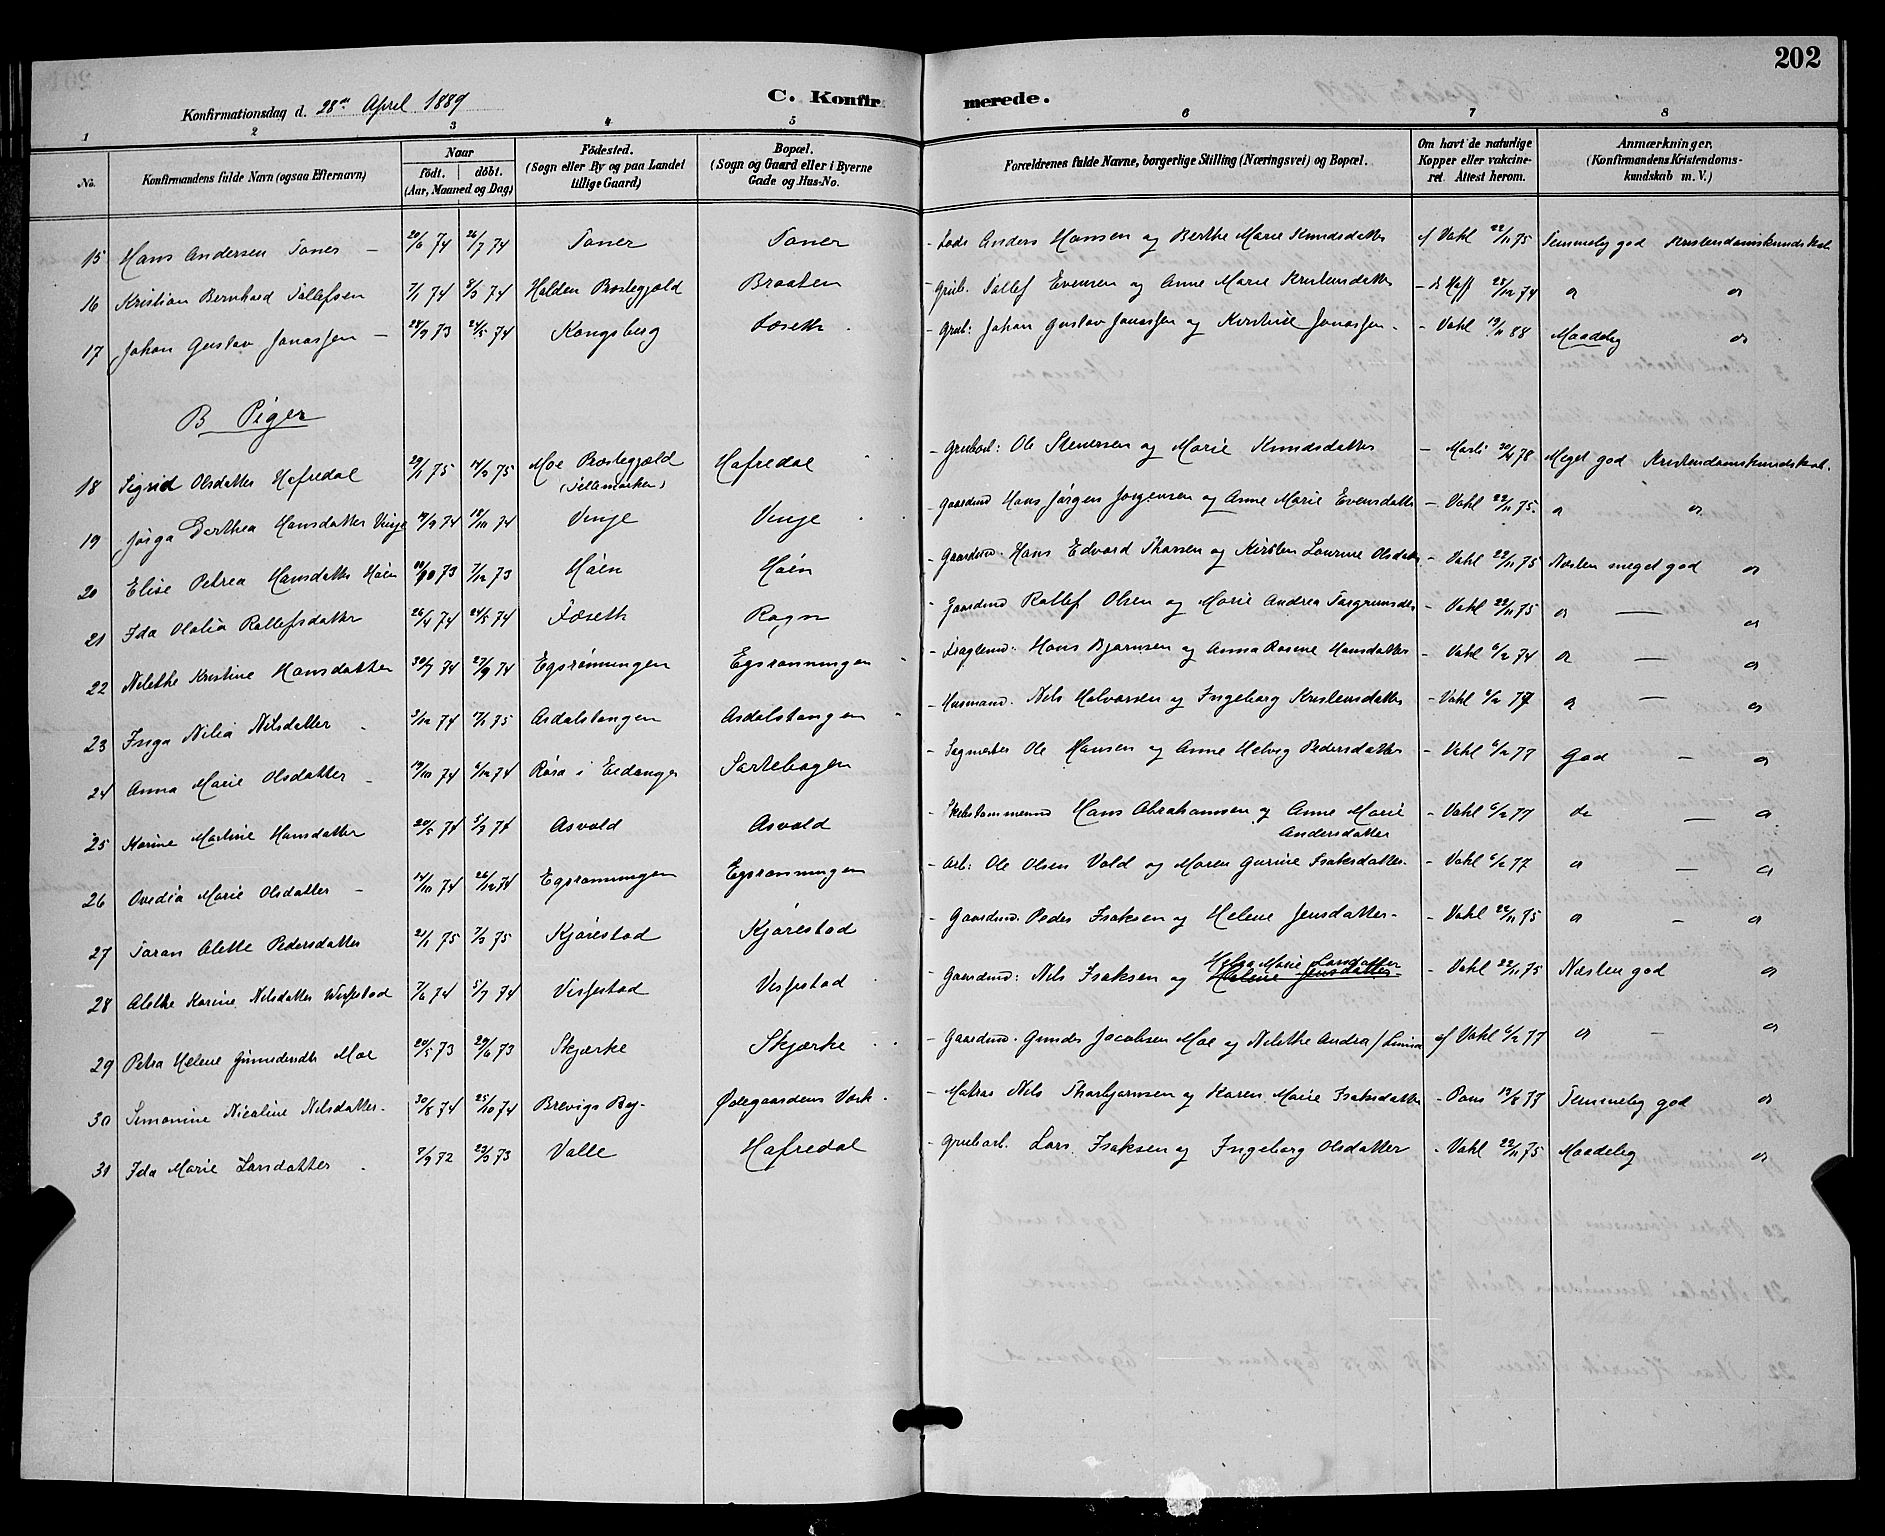 202
Konfirmationsdag d. 28de April 1889
C. Konfirmerede.
1 2 3 4 5 6 7 8
No. Konfirmandens fulde Navn (ogsaa Efternavn) Naar født. døbt. (Aar, Maaned og Dag) Födested. (Sogn eller By og paa Landet tillige Gaard) Bopæl. (Sogn og Gaard eller i Byerne Gade og Hus-No. Forældrenes fulde Navne, borgerlige Stilling (Næringsvei) og Bopæl. Om havt de naturlige Kopper eller vaksineret. Attest herom. Anmærkninger, (Konfirmandens Kristendomskundskab m. V.)
15 Hans Andersen Toner - 20/6 74 26/7 74 Toner Toner - Lods Anders Hansen og Berthe Marie Knudsdatter af Vahl 22/11 75 Temmelig god Kristendomskundskab
16 Kristian Bernhard Tollefsen 7/1 74 8/3 74 Holden Præstegjæld Braaten - Grub. Tollef Evensen og Anne Marie Kristensdatter 28/12 74 do do
17 Johan Gustav Jonassen - 28/9 73 24/5 74 Kongsberg Foseth - Grub: Johan Gustav Jonassen og Kristine Jonassen - - Vahl 19/11 88 Maadelig do
B Piger
18 Sigrid Olsdatter Hafredal 29/1 75 14/3 75 Moe Præstegjæld (Telemarken) Hafredal - Grubarb: Ole Stenersen og Marie Knudsdatter - Marli 20/4 78 Meget god Kristendomskundskab.
19 Jørga Dorthea Hansdatter Vinje 14/9 74 18/10 74 Vinje Vinje - Gaardmd Hans Jørgen Jørgensen og Anne Marie Evensdatter - Vahl 22/11 75. do do
20 Elise Petrea Hansdatter Høen 10/10 73 7/12 73 Høen Høen - Gaardmd. Hans Edvard Thorsen og Kirsten Lourine Olsdatter - Vahl 22/11 75 Næsten meget god do
21 Ida Olalia Rollefsdatter 26/4 74 24/5 74 Foseth Rogn - Gaardmd Rollef Olsen og Marie Andrea Torgrimsdtr - Vahl 22/11 75 do — do
22 Nilethe Kristine Hansdatter 30/7 74 27/9 74 Egsrønningen Egsrønningen - Hans Bjørnsen og Anna Rosine Hansdatter - Vahl 6/2 74 do — do
23 Inga Nilia Nilsdatter - 3/12 74 17/1 75 Asdalstangen Asdalstangen - Husmand. Nils Halvorsen og Ingeborg Kristensdatter - Vahl 6/2 77 do — do
24 Anna Marie Olsdatter - 19/10 74 6/12 74 Røra i Eidanger Sortebogen - Sagmester Ole Hansen og Anne Helvig Pedersdatter - Vahl 6/2 77 God — do
25 Karine Martine Hansdatter 20/5 74 5/7 74 Asvold Asvold - Hans Abrahamsen og Anne Marie Andersdatter - Vahl 6/2 77 do — do
26 Ovedia Marie Olsdatter - 14/10 74 26/12 74 Egsrønningen Egsrønningen - Arb: Ole Olsen Vold og Maren Gurine Isaksdatter - Vahl 6/2 77 do — do
27 Taran Alette Pedersdatter 21/1 75 7/3 75 Kjørestad Kjørestad - Gaardmd. Peder Isaksen og Helene Jensdatter - - Vahl 22/11 75 do - do
28 Alethe Karine Nilsdatter Visfestad 7/6 74 5/7 74 Visfestad Visfestad - Gaardmd: Nils Isaksen og Helene Jensdatter Helga Marie Larsdatter - Vahl 22/11 75 Næsten god do
29 Petra Helene Gunnersdtr Moe 20/5 73 29/6 73 Skjærke Skjærke - Gaardmd. Gunder Jacobsen Moe og Nilethe Andrea af Vahl 6/2 77 do — do
30 Simonine Nicoline Nilsdatter - 30/8 74 25/10 74 Brevigs By - Ødegaardens Værk - - Matros Nils Thorbjørnsen og Karen Marie Isaksdatter - Paus 19/8 77 Temmelig god do
31 Ida Marie Larsdatter - 7/9 72 23/3 73 Valle Hafredal - Grubarb. Lars Isaksen og Ingeborg Olsdatter - Vahl 22/11 75 Maadelig do